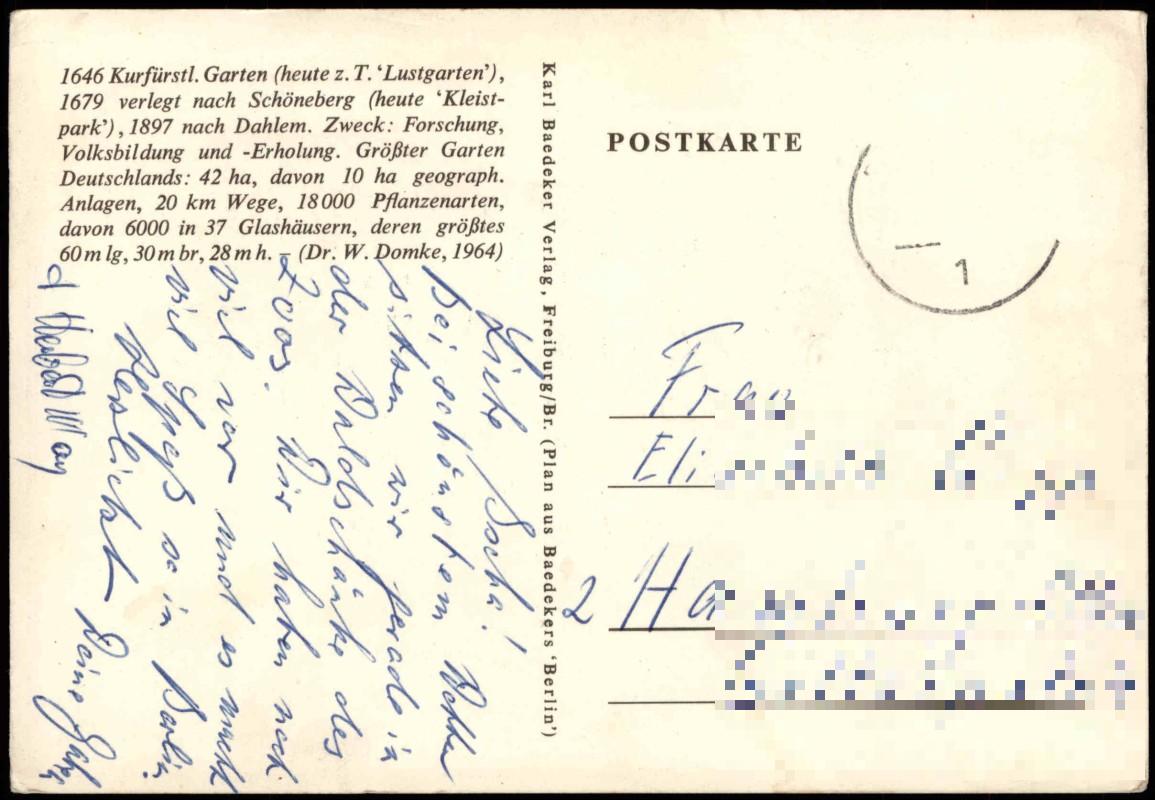 1646 Kurfürstl. Garten (heute z. T. ‘Lustgarten’),
1679 verlegt nach Schöneberg (heute ‘Kleist-
park’), 1897 nach Dahlem. Zweck: Forschung,
Volksbildung und -Erholung. Größter Garten
Deutschlands: 42 ha, davon 10 ha geograph.
Anlagen, 20 km Wege, 18000 Pflanzenarten,
davon 6000 in 37 Glashäusern, deren größtes
60 m lg, 30 m br, 28 m h. – (Dr. W. Domke, 1964)
Liebe
Bei schönstem
sitzen wir gerade in
der Waldschänke des
Zoos. Wir haben noch
viel vor und es macht
viel Spaß so in Berlin.
Herzlichst Deine
Karl Baedeker Verlag, Freiburg/Br. (Plan aus Baedekers ‘Berlin’)
POSTKARTE
1
Frau
Eli
2 Ha